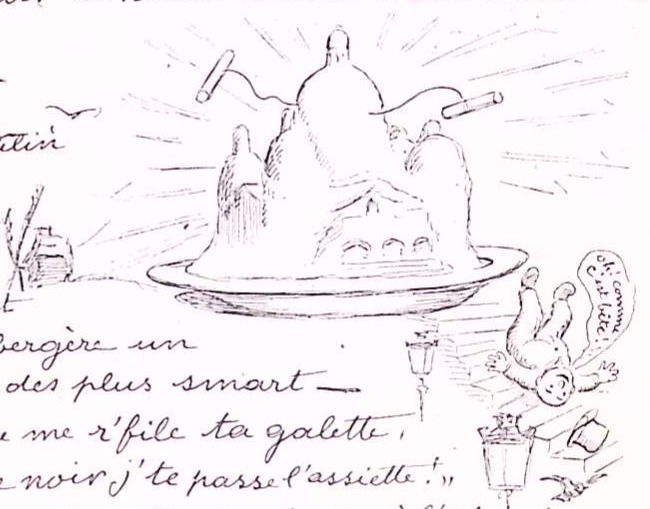 bergère un
des plus smart —
me r'file ta galette,
noir j'te passe l'assiette!„
oh! comme
c'est bête!